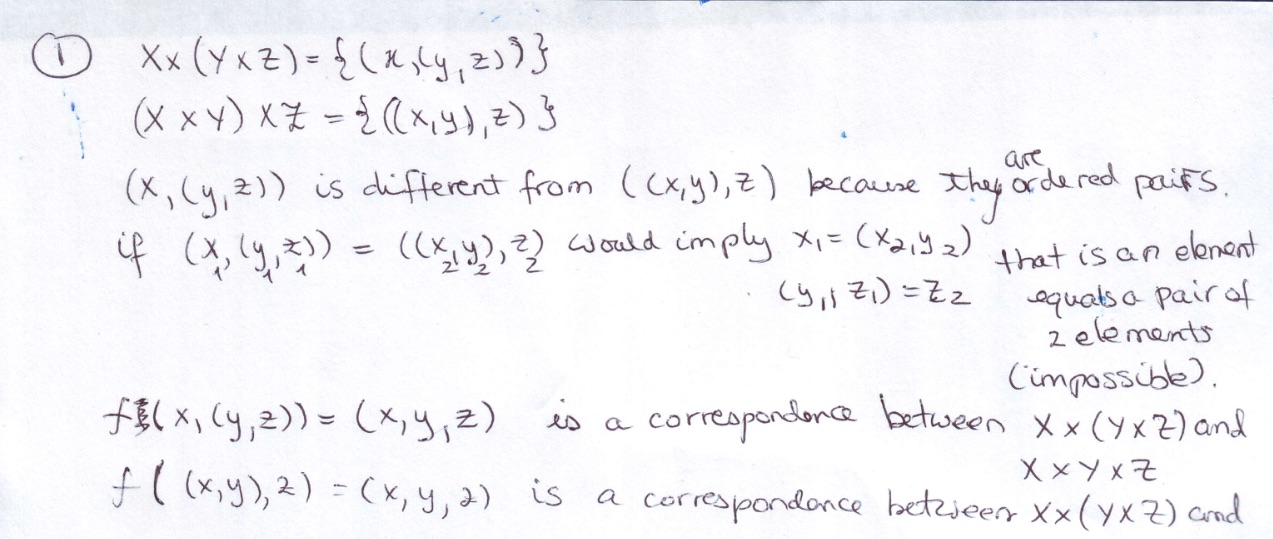 ① X×(Y×Z)={(x,(y,z))}
(X×Y)×Z={((x,y),z)}
(x,(y,z)) is different from ((x,y),z) because they are ordered pairs.
if (x₁,(y₁,z₁)) = ((x₂,y₂),z₂) would imply x₁=(x₂,y₂) that is an element
(y₁,z₁)=z₂ equals a pair of
2 elements
(impossible).
f(x,(y,z))=(x,y,z) is a correspondence between X×(Y×Z) and
X×Y×Z
f((x,y),z)=(x,y,z) is a correspondance between X×(Y×Z) and